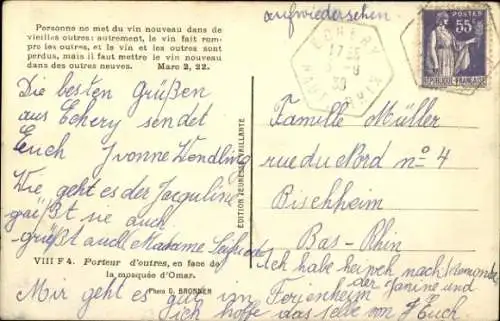 aufwiedersehen
Personne ne met du vin nouveau dans de
vieilles outres: autrement, le vin fait rom-
pre les outres, et le vin et les outres sont
perdus, mais il faut mettre le vin nouveau
dans des outres neuves. Marc 2, 22.
POSTES
55c
REPUBLIQUE FRANÇAISE
ECHERY
Die besten Grüßen
aus Echery sendet
Euch Yvonne Wendling
Wie geht es der Jacquline
sie auch
grüßt auch Madame
VIII F 4. Porteur d'outres, en face de
la mosquée d'Omar.
Photo G. BRONNER
Mir geht es gut im Ferjenheim
ich hoffe das selbe von Euch
EDITION JEUNESSE VAILLANTE
Familie Müller
rue du Nord no 4
Bischheim
Bas-Rhin
Ich habe nach
der Janine und